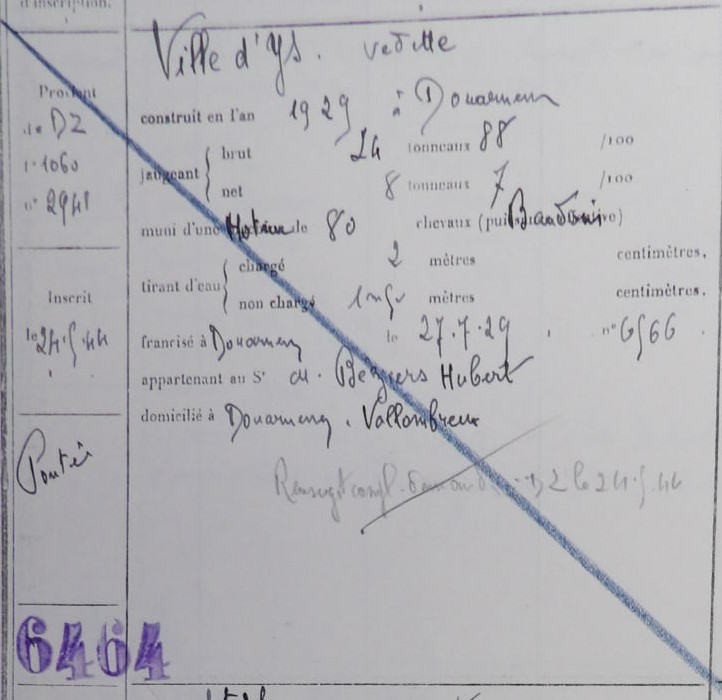 d'inscription.
Ville d'YS. vedette
Provient
de DZ
f° 1060
n° 2941
construit en l'an 1929 à Douarnenez
jaugeant { brut 24 tonneaux 88 /100
net 8 tonneaux 7 /100
muni d'une Moteur de 80 chevaux (puis Baudouin ve)
tirant d'eau { chargé 2 mètres centimètres.
non chargé 1m50 mètres centimètres.
Inscrit
le 24.5.44
francisé à Douarnenez le 27.7.29 , n° 6566.
appartenant au Sr M. Béziers Hubert
domicilié à Douarnenez. Vallombreuse
Pontée
DZ le 24.5.44
6464